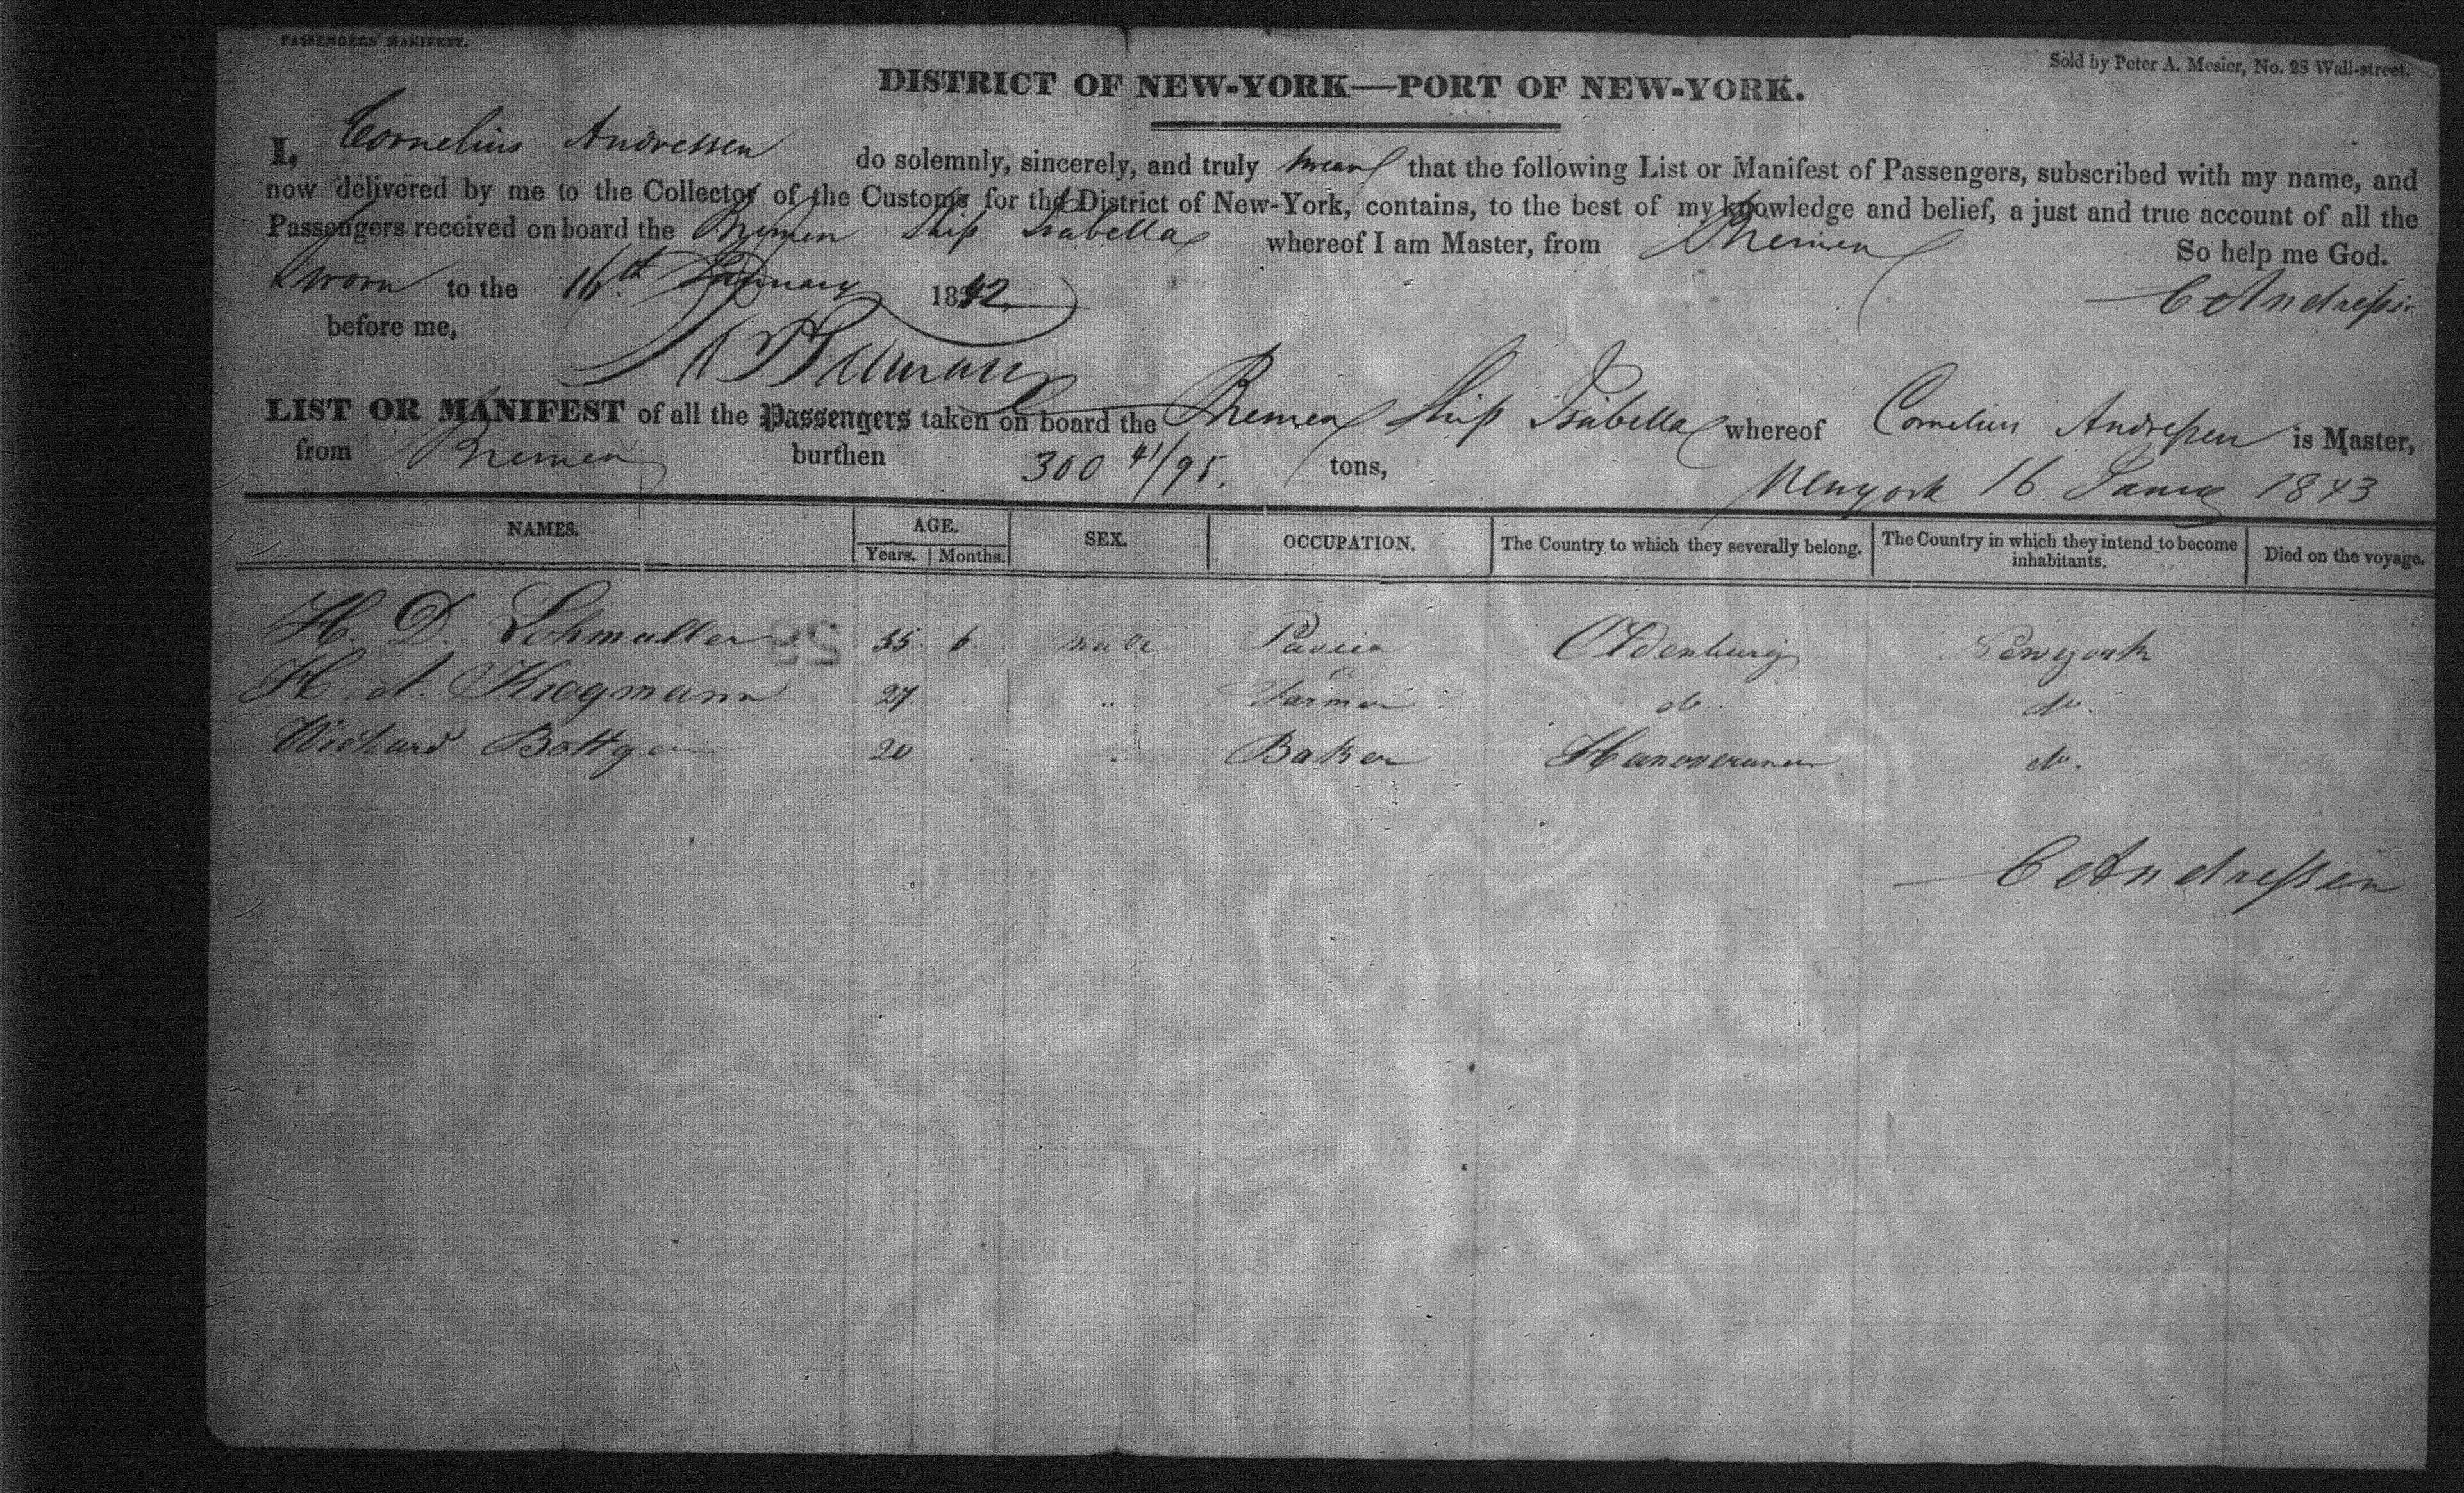 PASSENGERS' MANIFEST.
Sold by Peter A. Mesier, No. 28 Wall-street.
DISTRICT OF NEW-YORK—PORT OF NEW-YORK.
I, Cornelius Andressen do solemnly, sincerely, and truly swear that the following List or Manifest of Passengers, subscribed with my name, and
now delivered by me to the Collector of the Customs for the District of New-York, contains, to the best of my knowledge and belief, a just and true account of all the
Passengers received on board the Bremen Ship Isabella whereof I am Master, from Bremen So help me God.
Sworn to the 16th January 1842
C Andressen
before me,
LIST OR MANIFEST of all the Passengers taken on board the Bremen Ship Isabella whereof Cornelius Andressen is Master,
from Bremen burthen 300 41/95. tons,
Newyork 16 January 1843
NAMES. AGE. SEX. OCCUPATION. The Country to which they severally belong. The Country in which they intend to become inhabitants. Died on the voyage.
Years. Months.
H. D. Lohmuller 55 6. male Oldenburg Newyork
H. A. Krogmann 27 " Farmer do. do.
Wichard Bottger 20 Baker Hanoveraner do.
C Andressen